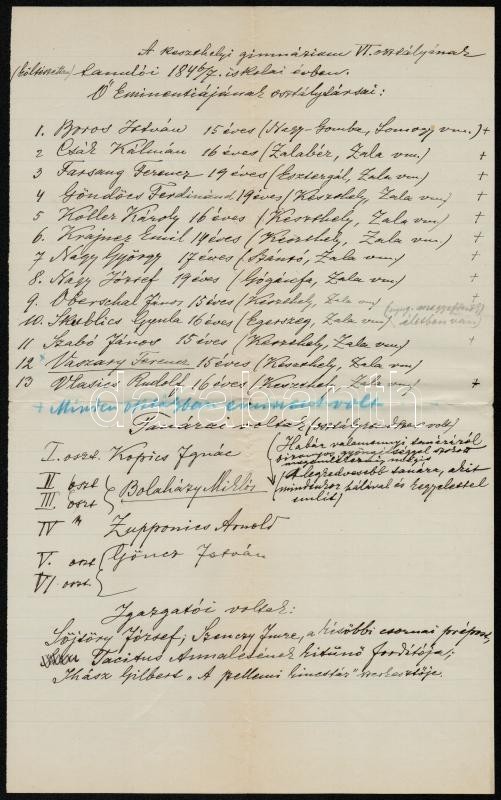 A keszthelyi gimnázium VI. osztályának
(költészettan) tanulói 1846/7. iskolai évben.
Ő Eminentiájának osztálytársai:
1. Boros István 15 éves (Nagy-Gomba, Somogy vm.) +
2 Csák Kálmán 16 éves (Zalabér, Zala vm.) +
3 Farsang Ferencz 19 éves (Esztergál, Zala vm) +
4 Göndöcs Ferdinánd 19 éves (Keszthely, Zala vm) +
5 Koller Károly 16 éves (Keszthely, Zala vm) +
6. Krajner Emil 14 éves (Keszthely, Zala vm) +
7 Nagy György 17 éves (Sántó, Zala vm) +
8. Nagy József 19 éves (Gógánfa, Zala vm) +
9. Oberschal János 15 éves (Keszthely, Zala vm) +
10. Skublics Gyula 16 éves (Egerszeg, Zala vm) (nyug. megyefőnök) életben van)
11 Szabó János 15 éves (Keszthely, Zala vm) +
12 Vaszary Ferencz 15 éves (Keszthely, Zala vm)
13 Vlasics Rudolf 16 éves (Keszthely, Zala vm) +
+ Minden osztályban eminens volt
Tanárai voltak (osztály
I. oszt. Kopics Ignác
(Habár valamennyi tanáráról
bizonyos gyöngédséggel szokott
megemlékezni,
II oszt
III. oszt Bolaházy Miklós
(A legkedvesebb tanára, akit
mindenkor hálával és kegyelettel
említ)
IV " Zupponics Arnold
V. oszt Göncz István
VI. oszt.
Igazgatói voltak:
Söjtöry József; Szenczy Imre, a későbbi csornai prépost,
Tacitus Annalesének kitűnő fordítója;
Ihász Gilbert „A jellemi kincstár" szerkesztője.